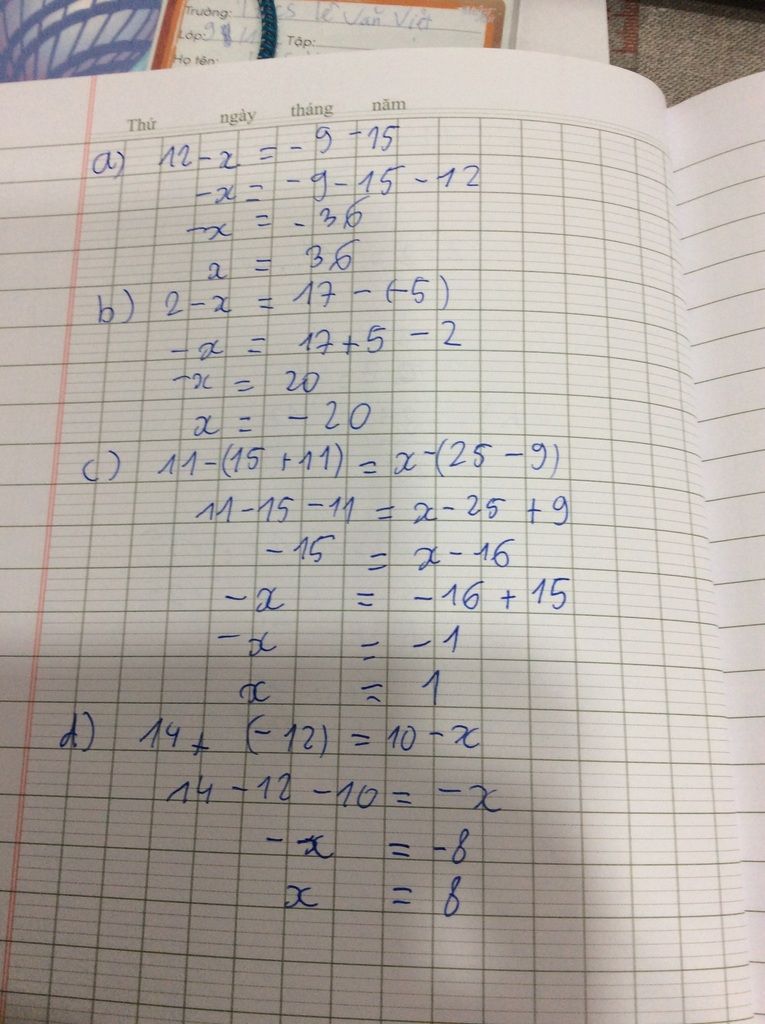 Trường: lê Văn Việt
Lớp: 9
Tập:
Họ tên:
Thứ ngày tháng năm
a) 12 - x = - 9 - 15
-x = - 9 - 15 - 12
-x = - 36
x = 36
b) 2 - x = 17 - (-5)
- x = 17 + 5 - 2
-x = 20
x = - 20
c) 11 - (15 + 11) = x - (25 - 9)
11 - 15 - 11 = x - 25 + 9
- 15 = x - 16
- x = - 16 + 15
- x = - 1
x = 1
d) 14 + (- 12) = 10 - x
14 - 12 - 10 = - x
- x = -8
x = 8